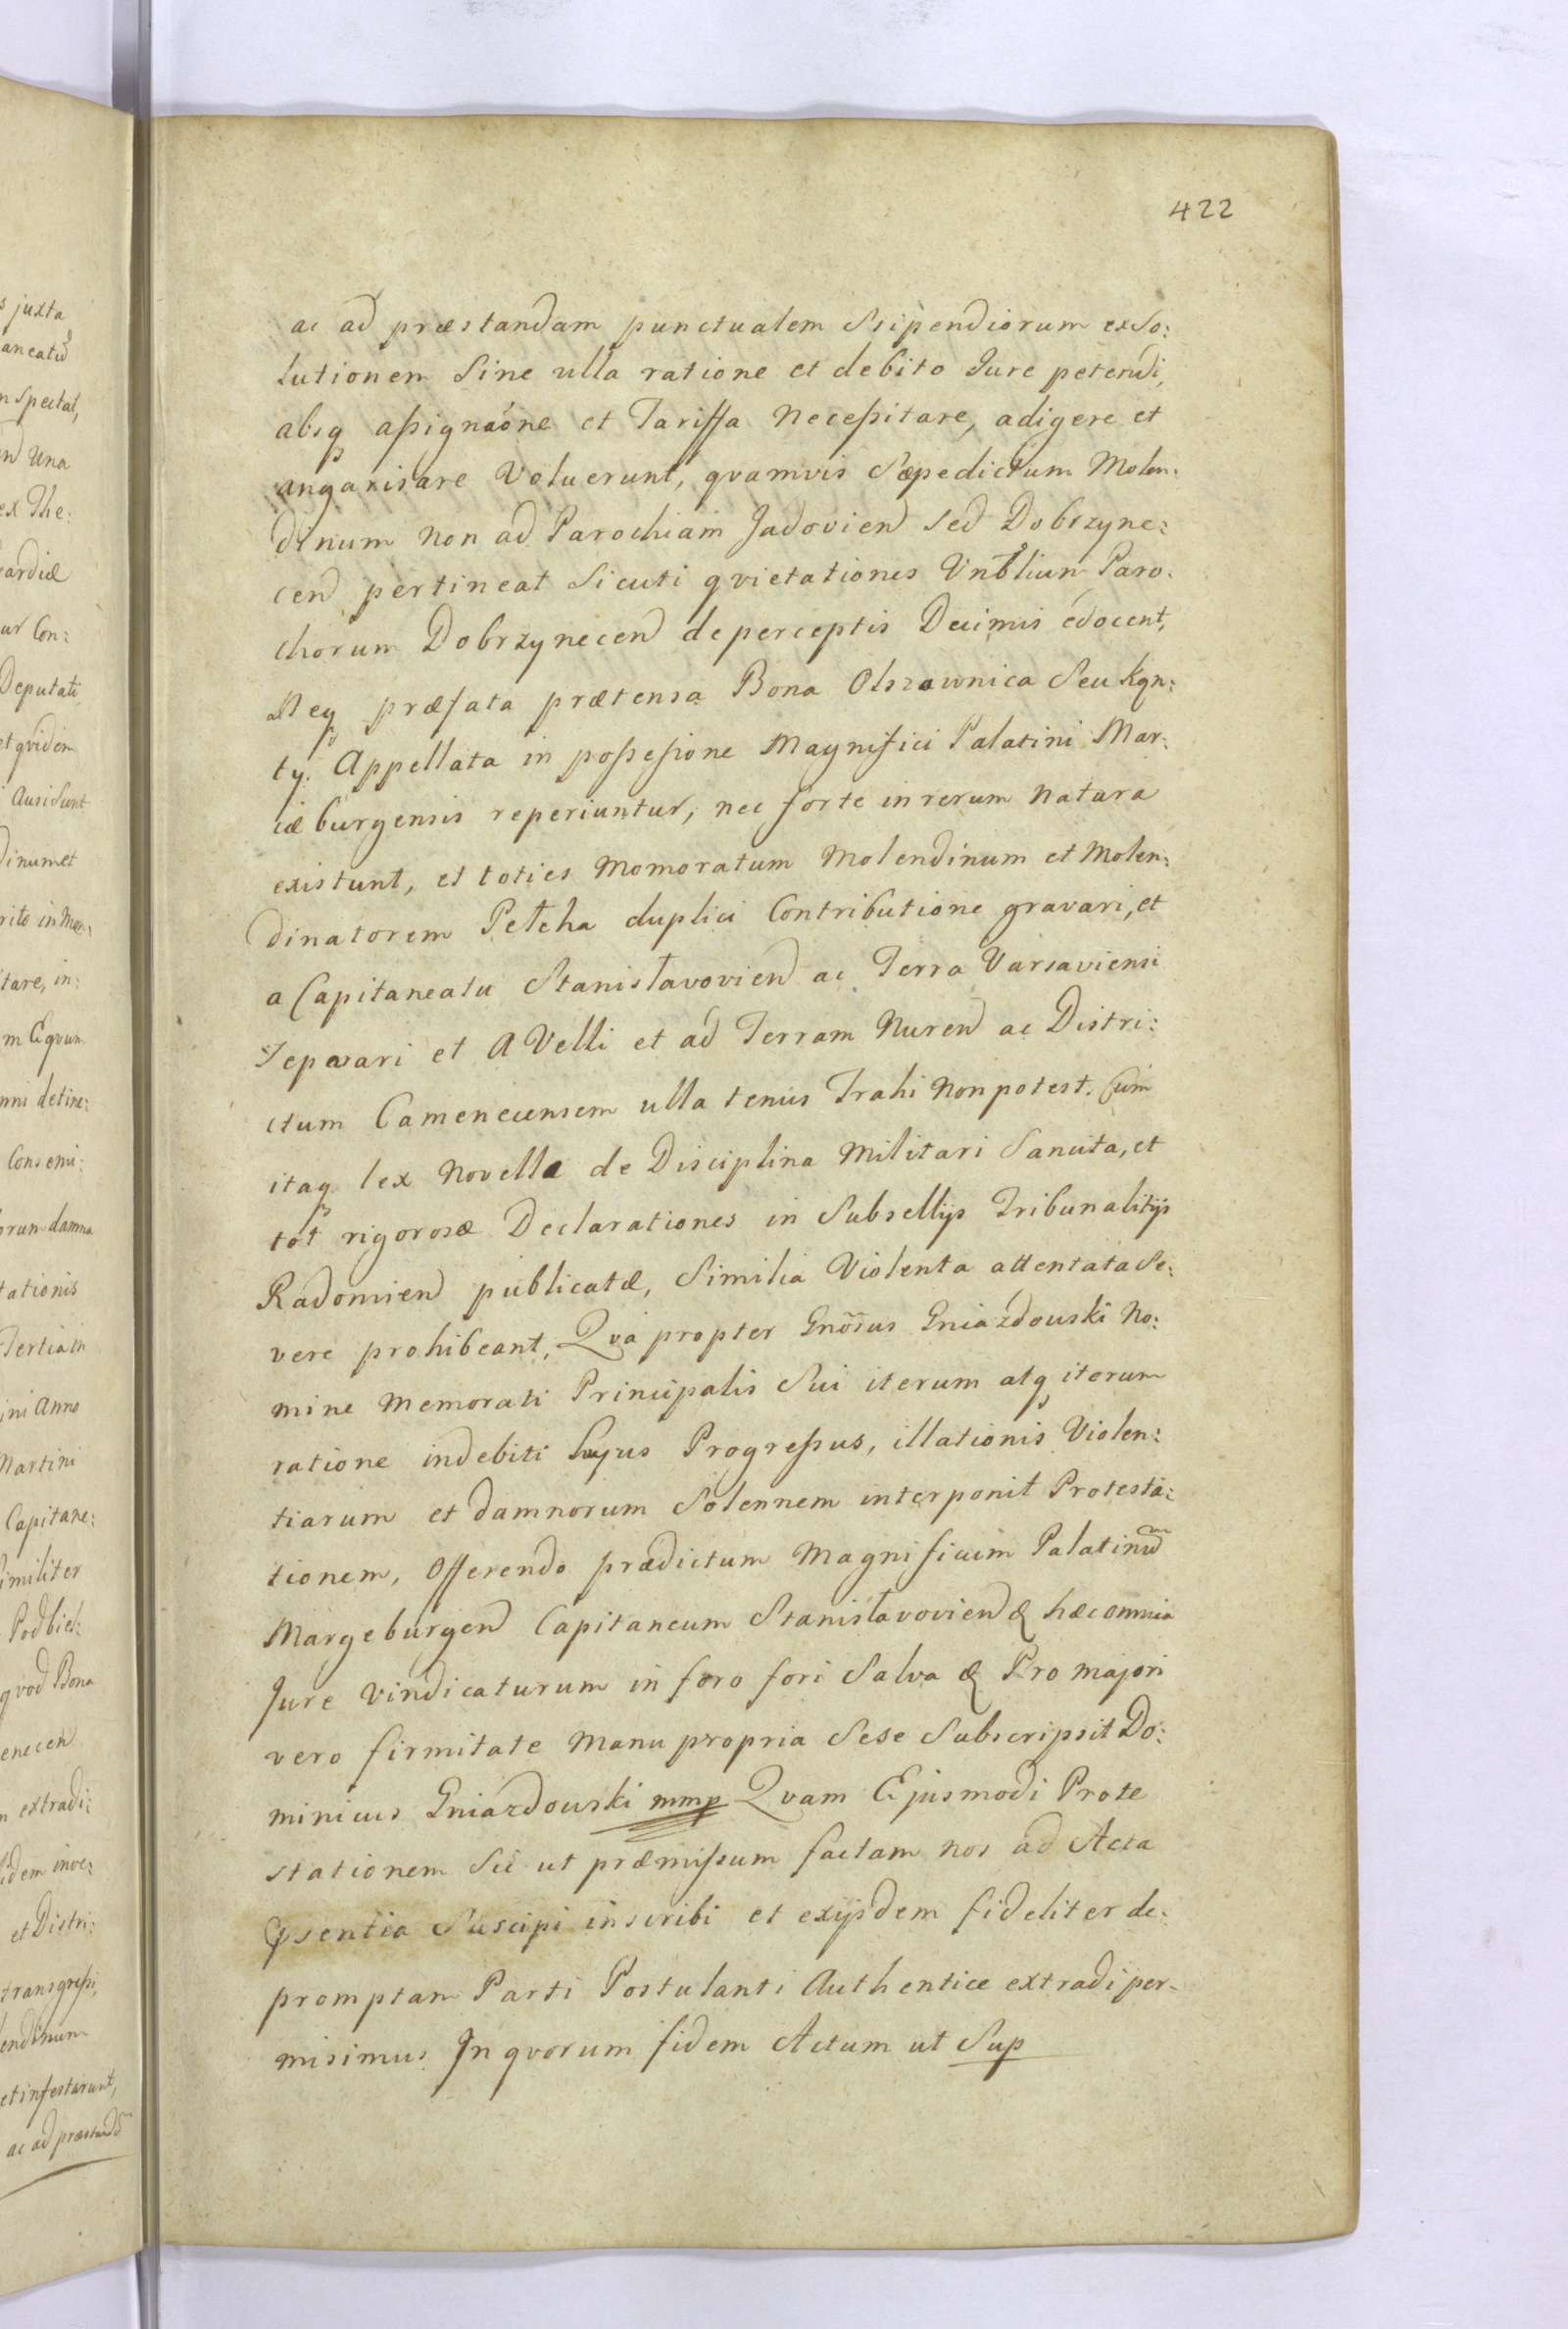 422
ac ad præstandam punctualem Stipendiorum exso:
lutionem Sine ulla ratione et debito Jure petendi,
absq aßignaóne et Tariffa Neceßitare, adigere et
angarisare Voluerunt, qvamvis Sæpedictum Molen:
dinum Non ad Parochiam Jadoviend Sed Dobrzyne:
cend pertineat Sicuti qvietationes Vnblium Paro:
chorum Dobrzynecend de perceptis Decimis edocent,
Neq præfata prætensa Bona Olszownica Seu Kąn:
ty. Appellata in poßeßione Magnifici Palatini Mar:
iæburgensis reperiuntur, nec forte in rerum Natura
existunt, et toties Momoratum Molendinum et Molen:
dinatorem Pełcha duplici Contributione gravari, et
a Capitaneatu Stanisłavoviend ac Terra Varsaviensi
Separari et AVelli et ad Terram Nurend ac Distri:
ctum Camenecensem ulla tenus Trahi Non potest. Cum
itaq lex Novella de Disciplina Militari Sancita, et
tot rigorosæ Declarationes in Subsellijs Tribunalitijs
Radomiend publicatæ, Similia Violenta attentata Se:
vere prohibeant, Qva propter Gnõsus Gniazdouski No:
mine Memorati Principalis Sui iterum atq iterum
ratione indebiti hujus Progreßus, illationis Violen:
tiarum et damnorum Solennem interponit Protesta:
tionem, Offerendo prædictum Magnificum Palatinũ
Margeburgend Capitaneum Stanisłavoviend & hæc omnia
Jure Vindicaturum in foro fori Salva & Pro majori
vero firmitate Manu propria Sese Subscripsit Do:
minicus Gniazdouski mmp Qvam Ejusmodi Prote
stationem Sic ut præmißum factam nos ad Acta
Suscipi inscribi et exijsdem fideliter de:
promptam Parti Postulanti Authentice extradi per-
misimus In qvorum fidem Actum ut Sup
s juxta
n Spectat,
Una
ex The:
ardiæ
Con:
Deputati
et qvidem
Ausi Sunt
dinum et
rito in
tare, in:
m Eqvum
detine:
orum damna
tationis
Tertia in
ini Anno
Martini
Capitane:
Similiter
Podbiel:
qvod Bona
enecen
m extradi:
idem inve:
et Distri:
transgreßi,
endinum
et infestarunt,
ac ad præstandã